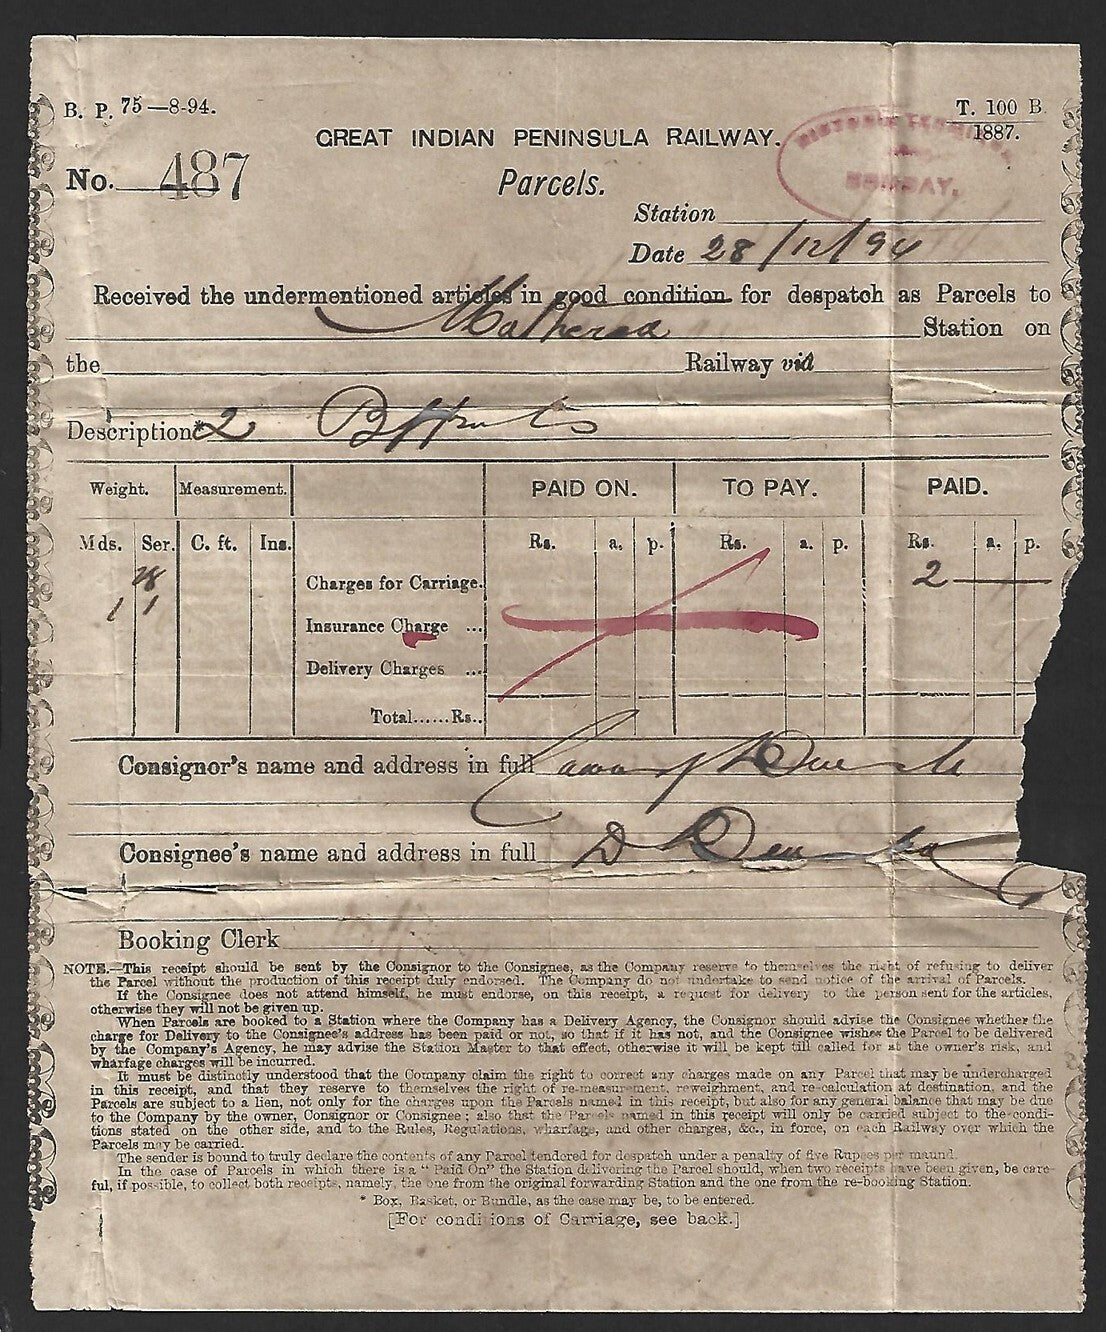 B. P. 75—8-94.
T. 100 B.
1887.
GREAT INDIAN PENINSULA RAILWAY.
No. 487
Parcels.
BOMBAY.
Station
Date 28/12/94
Received the undermentioned articles in good condition for despatch as Parcels to
Station on
the Railway viâ
Description* 2
Weight. Measurement. PAID ON. TO PAY. PAID.
Mds. Ser. C. ft. Ins. Rs. a. p. Rs. a. p. Rs. a. p.
28 Charges for Carriage. 2
1 1 Insurance Charge ...
Delivery Charges ...
Total......Rs..
Consignor's name and address in full
Consignee's name and address in full D
Booking Clerk
NOTE.—This receipt should be sent by the Consignor to the Consignee, as the Company reserve to themselves the right of refusing to deliver
the Parcel without the production of this receipt duly endorsed. The Company do not undertake to send notice of the arrival of Parcels.
If the Consignee does not attend himself, he must endorse, on this receipt, a request for delivery to the person sent for the articles,
otherwise they will not be given up.
When Parcels are booked to a Station where the Company has a Delivery Agency, the Consignor should advise the Consignee whether the
charge for Delivery to the Consignee's address has been paid or not, so that if it has not, and the Consignee wishes the Parcel to be delivered
by the Company's Agency, he may advise the Station Master to that effect, otherwise it will be kept till called for at the owner's risk, and
wharfage charges will be incurred.
It must be distinctly understood that the Company claim the right to correct any charges made on any Parcel that may be undercharged
in this receipt, and that they reserve to themselves the right of re-measurement, reweighment, and re-calculation at destination, and the
Parcels are subject to a lien, not only for the charges upon the Parcels named in this receipt, but also for any general balance that may be due
to the Company by the owner, Consignor or Consignee; also that the Parcels named in this receipt will only be carried subject to the condi-
tions stated on the other side, and to the Rules, Regulations, wharfage, and other charges, &c., in force, on each Railway over which the
Parcels may be carried.
The sender is bound to truly declare the contents of any Parcel tendered for despatch under a penalty of five Rupees per maund.
In the case of Parcels in which there is a "Paid On" the Station delivering the Parcel should, when two receipts have been given, be care-
ful, if possible, to collect both receipts, namely, the one from the original forwarding Station and the one from the re-booking Station.
* Box, Basket, or Bundle, as the case may be, to be entered.
[For conditions of Carriage, see back.]